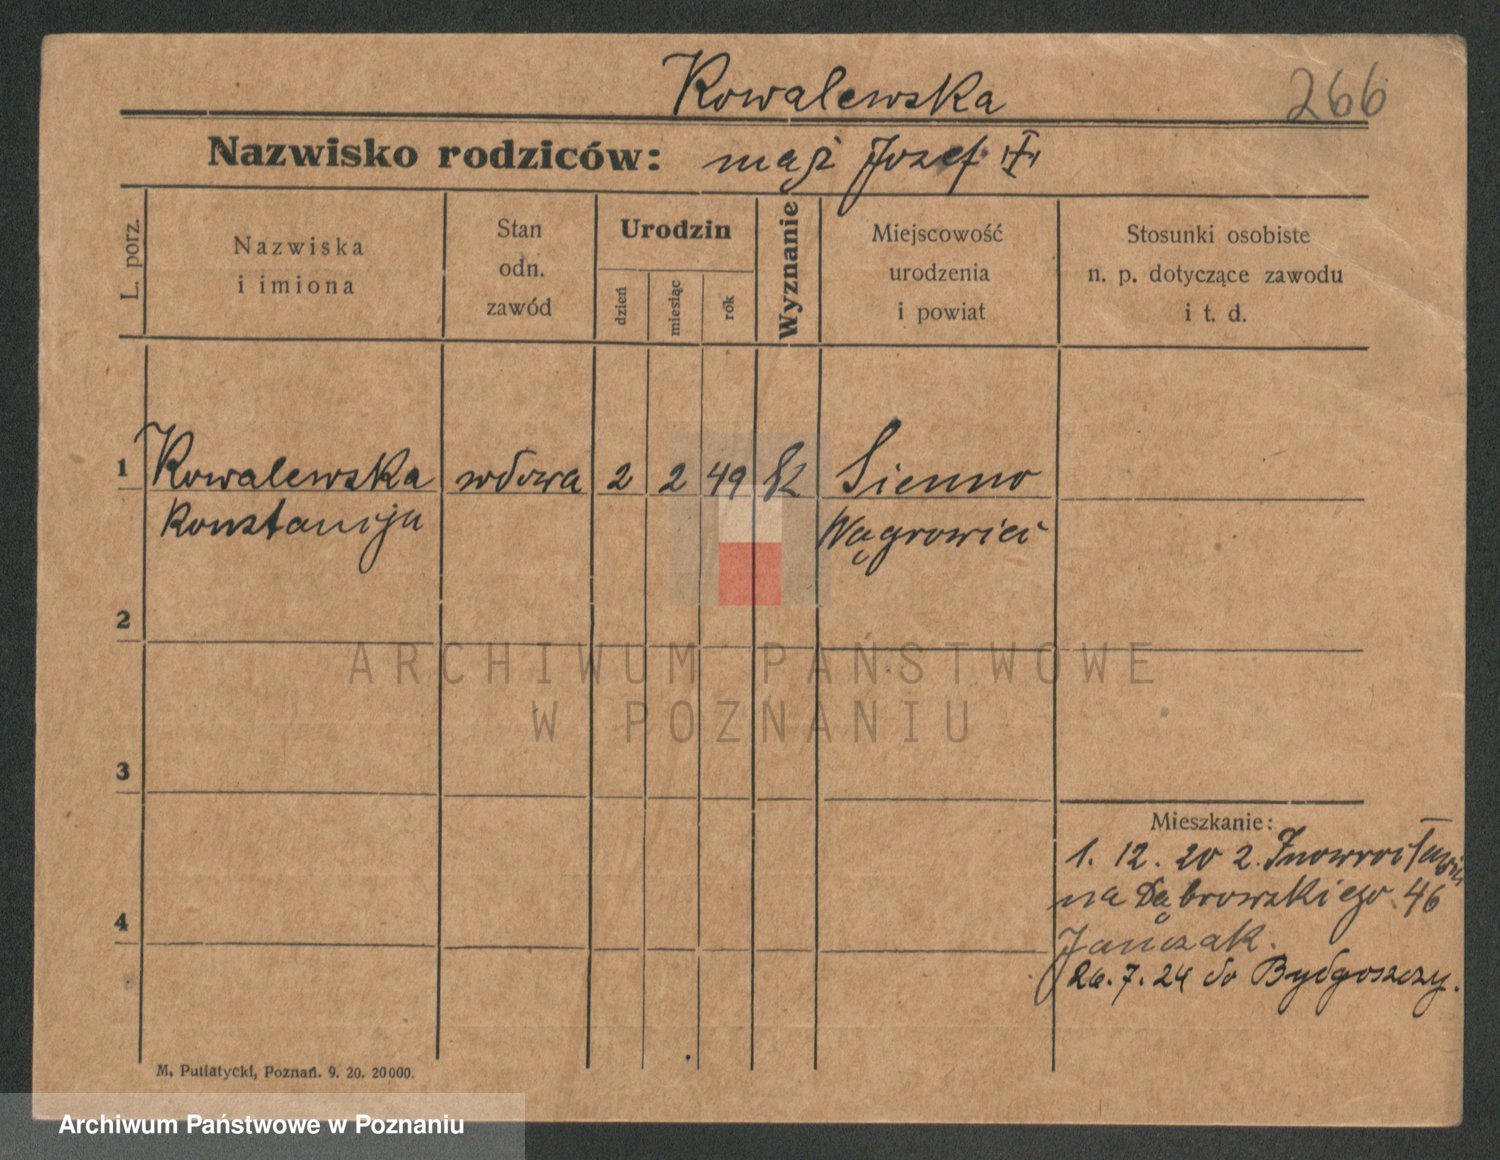 Kowalewska
266
Nazwisko rodziców: mąż Józef
L. porz.
Nazwiska
i imiona
Stan
odn.
zawód
Urodzin
dzień
miesiąc
rok
Wyznanie
Miejscowość
urodzenia
i powiat
Stosunki osobiste
n. p. dotyczące zawodu
i t. d.
1 Kowalewska wdowa 2 2 49 Sienno
Konstancja Wągrowiec
2
3
4
ARCHIWUM PAŃSTWOWE
W POZNANIU
Mieszkanie:
1. 12. 20 z Inowrocławia
na Dąbrowskiego 46
Jańczak.
26. 7. 24 do Bydgoszczy.
M. Putiatycki, Poznań. 9. 20. 20000.
Archiwum Państwowe w Poznaniu